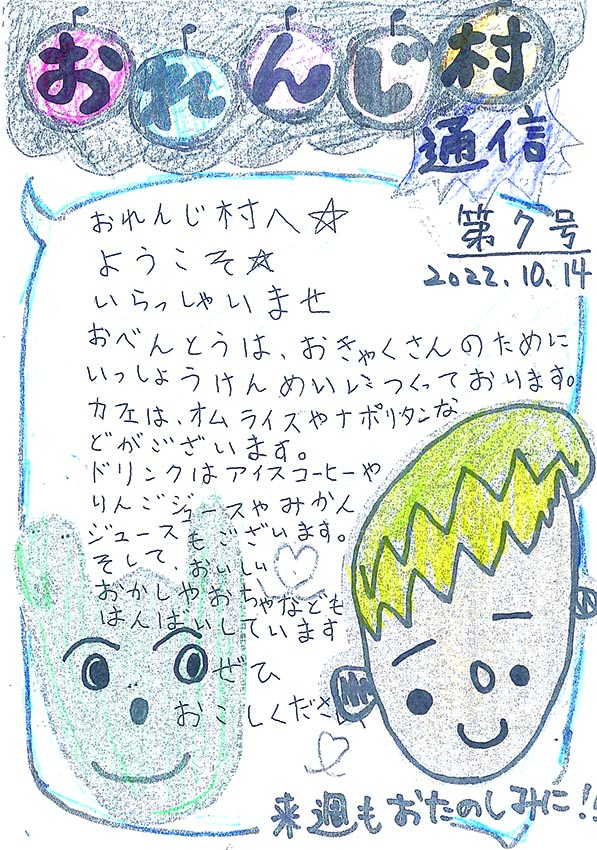 おれんじ村
通信
第7号
2022.10.14
おれんじ村へ☆
ようこそ☆
いらっしゃいませ
おべんとうは、おきゃくさんのために
いっしょうけんめいにつくっております。
カフェは、オムライスやナポリタンな
どがございます。
ドリンクはアイスコーヒーや
りんごジュースやみかん
ジュースもございます。
そして、おいしい♡
おかしやおちゃなども
はんばいしています
ぜひ
おこしください
来週もおたのしみに!!